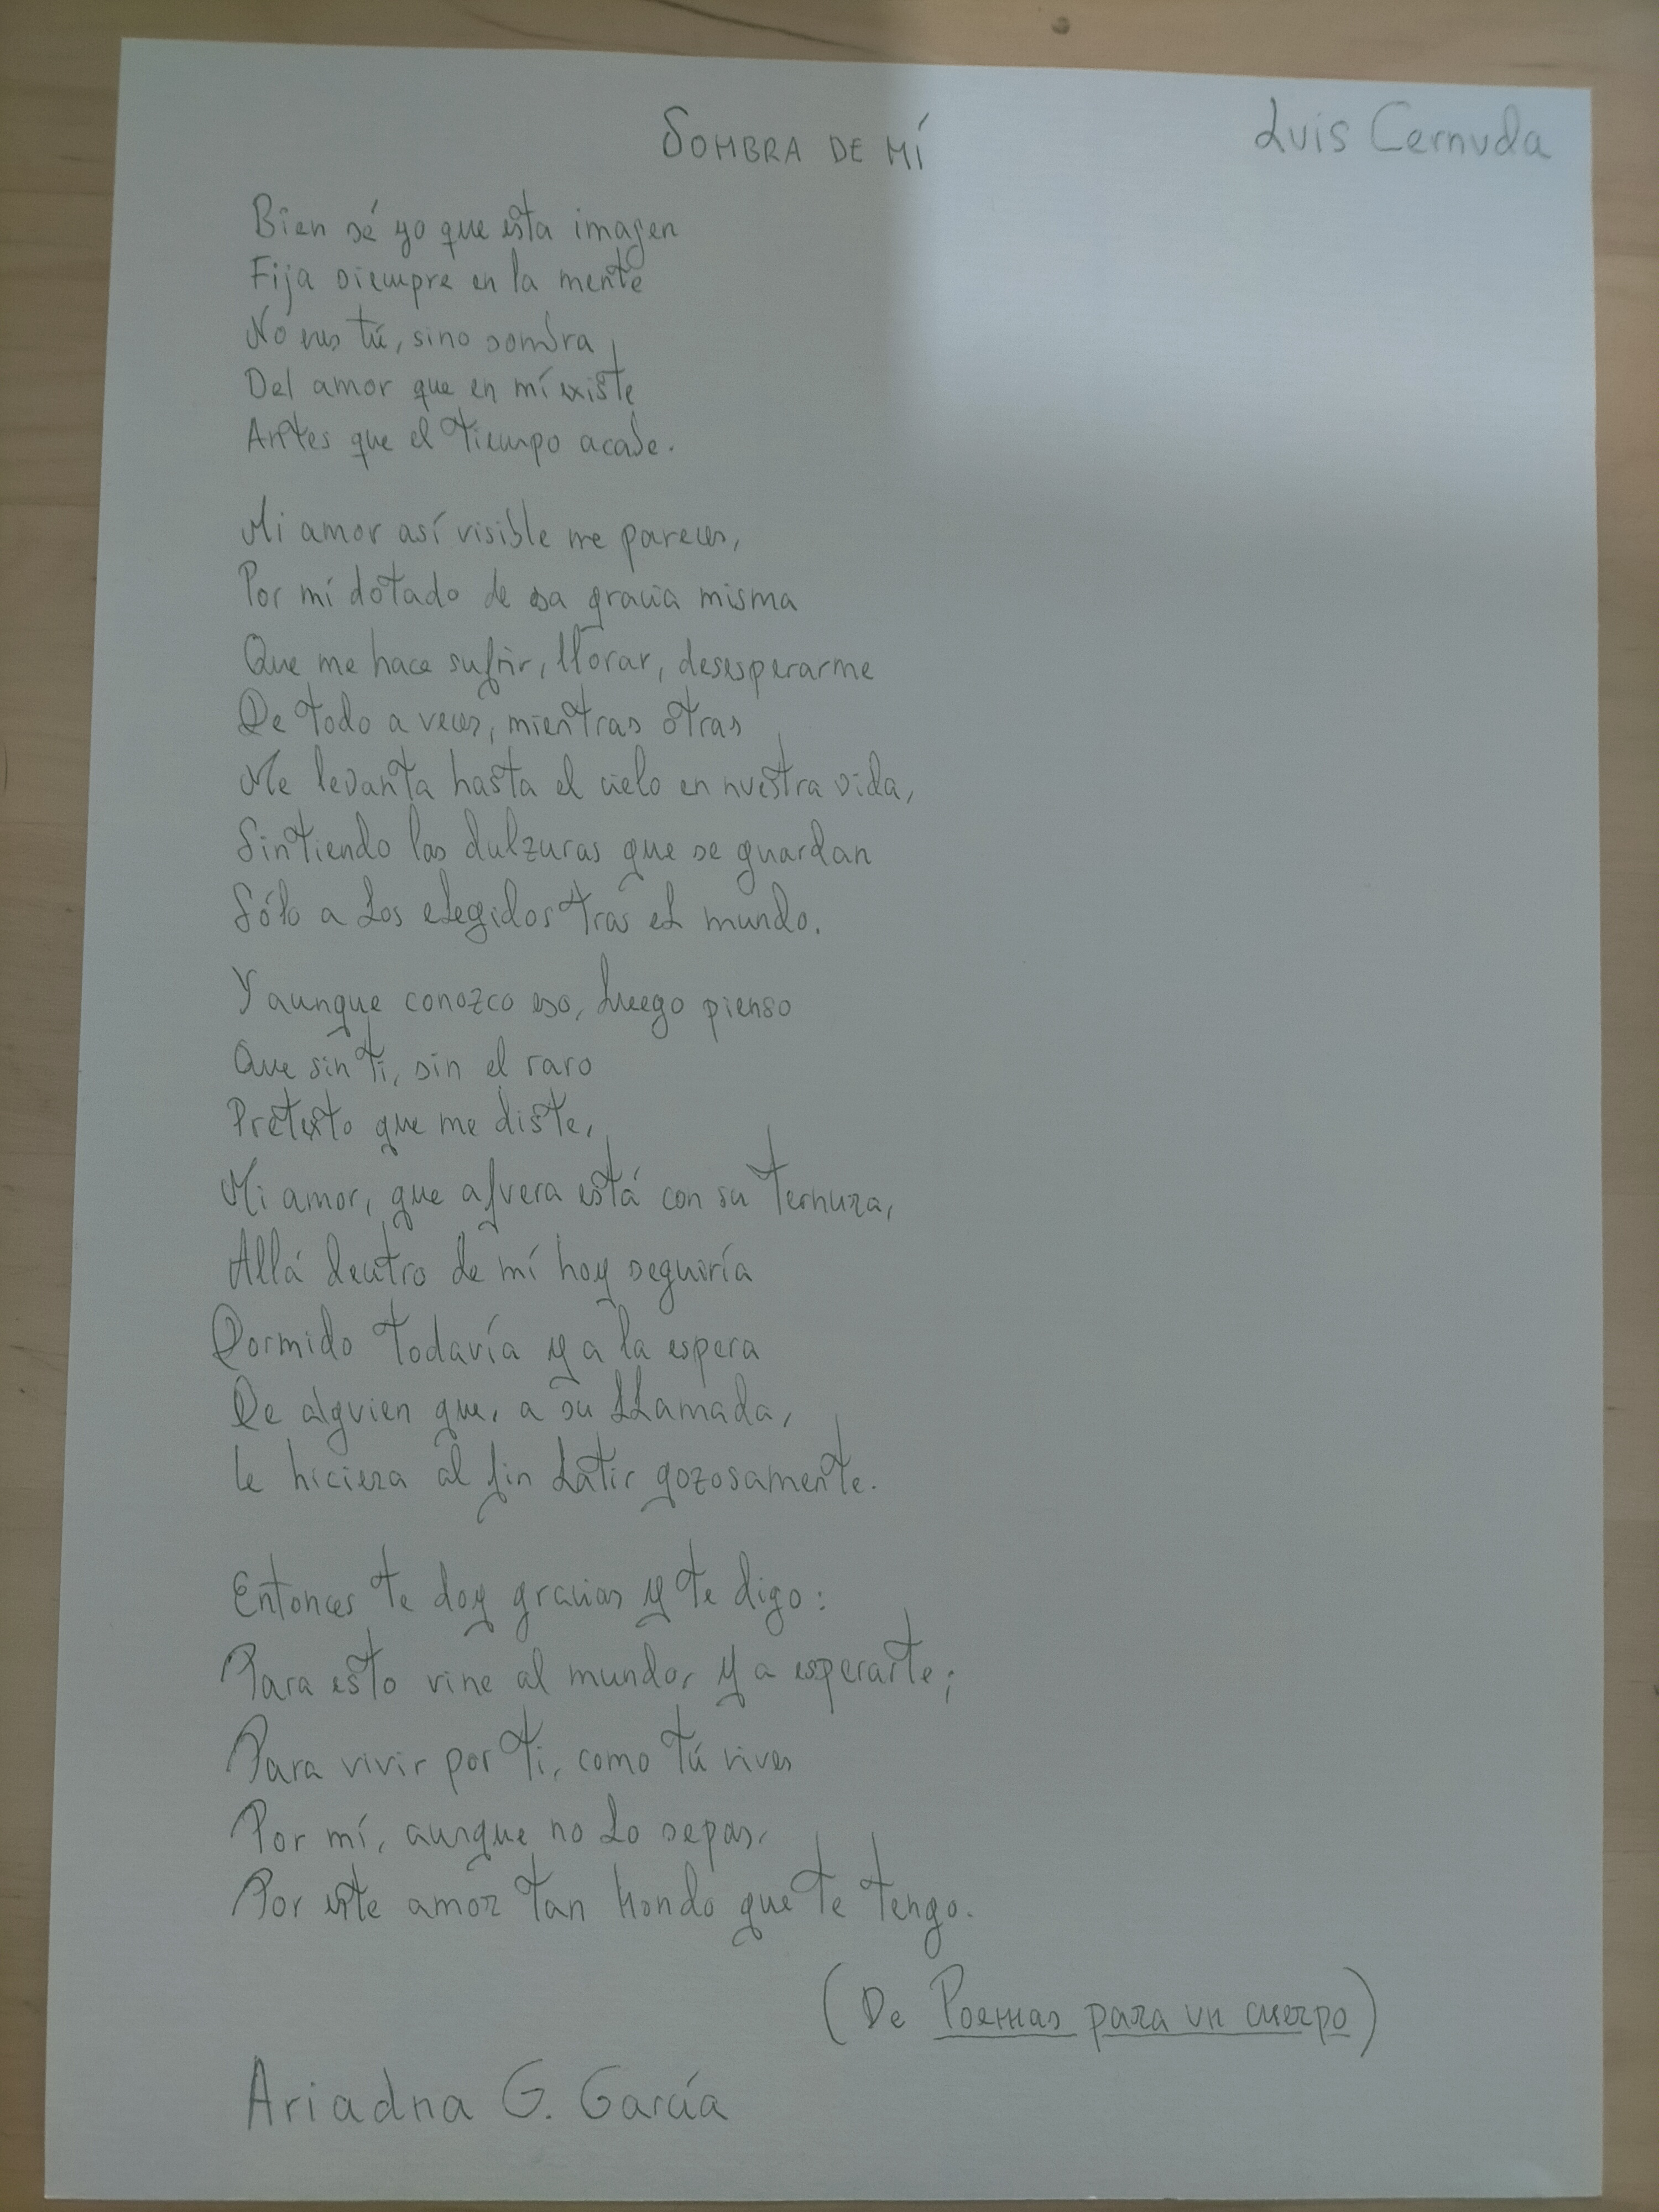 SOMBRA DE MÍ
Luis Cernuda
Bien sé yo que esta imagen
Fija siempre en la mente
No eres tú, sino sombra
Del amor que en mí existe
Antes que el tiempo acabe.
Mi amor así visible me pareces,
Por mí dotado de esa gracia misma
Que me hace sufrir, llorar, desesperarme
De todo a veces, mientras otras
Me levanta hasta el cielo en nuestra vida,
Sintiendo las dulzuras que se guardan
Sólo a los elegidos tras el mundo.
Y aunque conozco eso, luego pienso
Que sin ti, sin el raro
Pretexto que me diste,
Mi amor, que afuera está con su ternura,
Allá dentro de mí hoy seguiría
Dormido todavía y a la espera
De alguien que, a su llamada,
Le hiciera al fin latir gozosamente.
Entonces te doy gracias y te digo:
Para esto vine al mundo, y a esperarte;
Para vivir por ti, como tú vives
Por mí, aunque no lo sepas,
Por este amor tan hondo que te tengo.
(De Poemas para un cuerpo)
Ariadna G. García